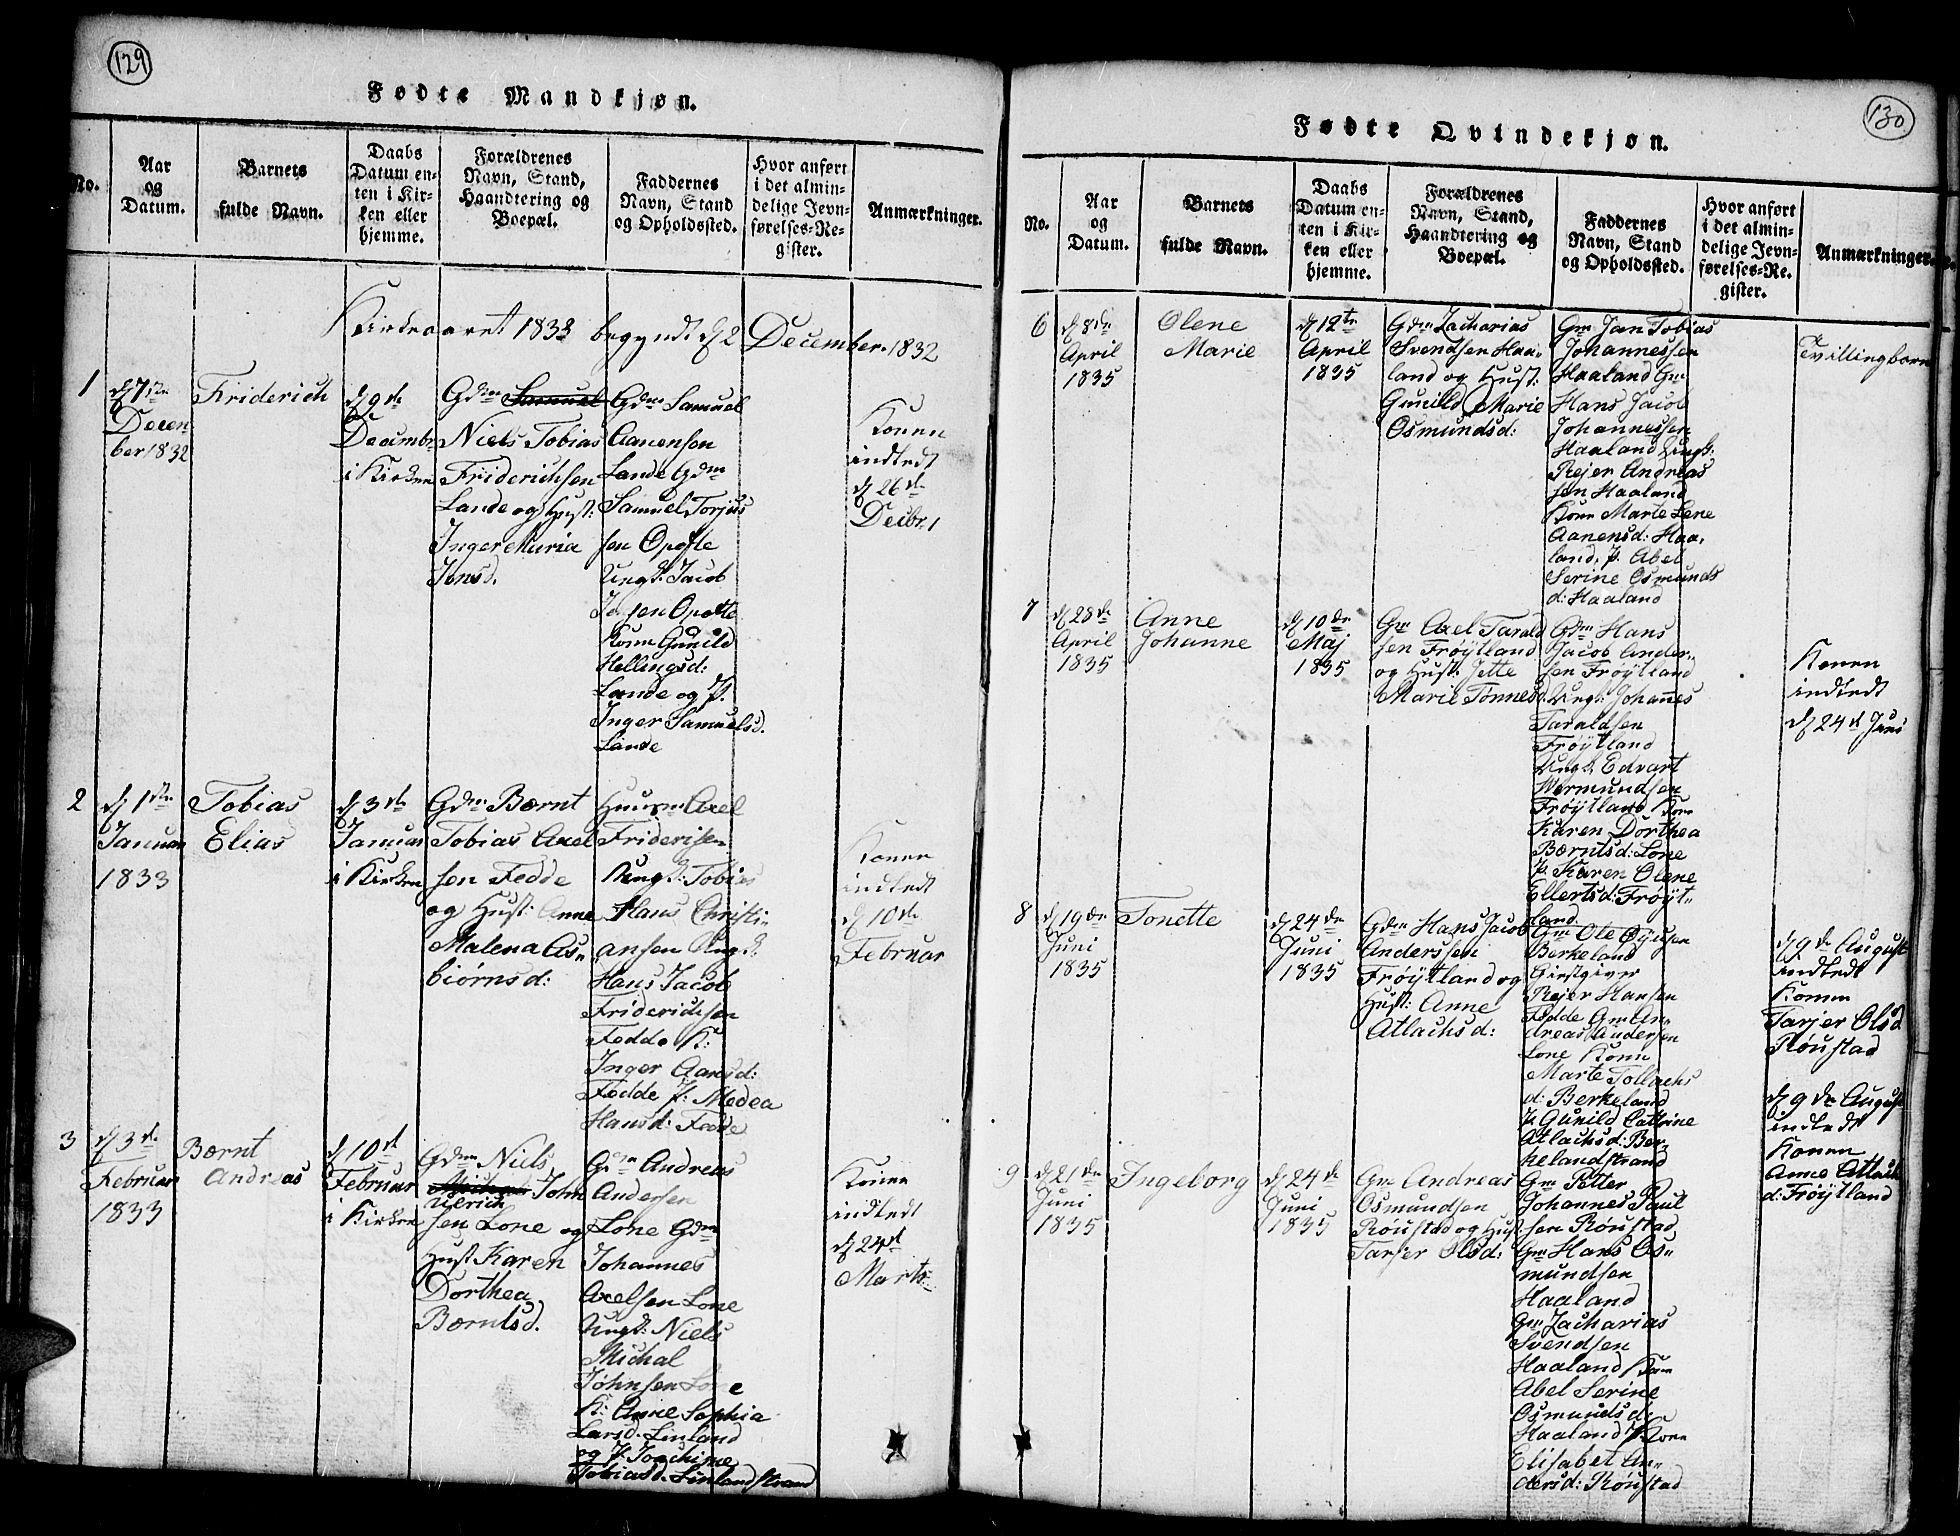 129
Fødte Mandkjøn.
No.
Aar
og
Datum.
Barnets
fulde Navn.
Daabs
Datum en-
ten i Kir-
ken eller
hjemme.
Forældrenes
Navn, Stand,
Haandtering og
Boepæl.
Faddernes
Navn, Stand
og Opholdssted.
Hvor anført
i det almin-
delige Jevn-
førelses-Re-
gister.
Anmærkninger.
Kirkeaaret 1833 begyndt d 2 December 1832
1
d 7de
Decen
ber 1832
Friderich
d 9de
Decembr
i Kirken
Gdm Samuel
Niels Tobias
Friderichsen
Lande og Hust:
Inger Maria
Jensd.
Gdm Samuel
Aanensen
Lande Gdm
Samuel Torjus
sen Opofte
Ungk: Jacob
Opofte
Kone Gunild
Hellingsd:
Lande og P.
Inger Samuelsd.
Lande
Konen
indledt
d 26d
Decbr.
2
d 1ste
Januar
1833
Tobias
Elias
d 3de
Januar
i Kirken
Gdm Bærnt
Tobias Axel
sen Fedde
og Hust: Anne
Malena As-
biørnsd:
Huusm Axel
Friderichsen
Ungk: Tobias
Hans Christi-
ansen Ungk:
Hans Jacob
Friderichsen
Fedde K:
Inger Aansd:
Fedde P: Medea
Hansd: Fedde
Konen
indledt
d 10de
Februar
3
d 3de
Februar
1833
Bærnt
Andreas
d 10d
Februar
i Kirken
Gdm Niels
John
Ulrich
sen Lone og
Hust Karen
Dorthea
Bærntsd.
Gdm Andreas
Andersen
Lone Gdm
Johannes
Axelsen Lone
Ungk: Niels
Michal
Johnsen Lone
K: Anne Sophia
Larsd. Linland
og P. Joachime
Tobiasd. Linlandstrand
Konen
indledt
d 24d
Marts
130
Fødte Qvindekjøn.
No.
Aar
og
Datum.
Barnets
fulde Navn.
Daabs
Datum en-
ten i Kir-
ken eller
hjemme.
Forældrenes
Navn, Stand,
Haandtering og
Boepæl.
Faddernes
Navn, Stand
og Opholdssted.
Hvor anført
i det almin-
delige Jevn-
førelses-Re-
gister.
Anmærkninger.
6
d 8de
April
1835
Olene
Marie
d 12te
April
1835
Gdm Zacharias
Svendsen Haa-
land og Hust:
Gunild Marie
Osmundsd:
Gm Jan Tobias
Johannessen
Haaland Gm
Hans Jacob
Johannessen
Haaland Ungk:
Rejer Andreas
sen Haaland
Kone Marte Lene
Aanensd: Haa-
land, P. Abel
Serine Osmunds
d: Haaland
Tvillingborn
7
d 28de
April
1835
Anne
Johanne
d 10de
Maj
1835
Gm Axel Tarald
sen Frøÿtland
og Hust: Jette
Marie Tønnesd:
Gdm Hans
Jacob Ander-
sen Frøÿtland
Ungk: Johannes
Taraldsen
Frøÿtland
Ungk Edvart
Wermundsen
Frøÿtland Kone
Karen Dorthea
Bærntsd: Lone
P. Karen Olene
Ellertsd: Frøÿt-
land
Konen
indledt
d 24d Juni
8
d 19de
Juni
1835
Tonette
d 24de
Juni
1835
Gdm Hans Jacob
Anderssen
Frøÿtland og
Hust: Anne
Atlachsd:
Gm Ole Øÿusen
Berkeland
Giestgiver
Rejer Hansen
Fedde Gm An-
dreas Andersen
Lone Kone
Marte Tollachs
d: Berkeland
P. Gunild Cathrine
Atlachsd: Ber-
kelandstrand
d 9de August
indledt
Konen
Tarjer Olsd
Røustad
d 9de August
indledt
Konen
Anne Atlach
d: Frøÿtland
9
d 21de
Juni
1835
Ingeborg
d 24de
Juni
1835
Gm Andreas
Osmundsen
Røustad og Hust:
Tarjer Olsd:
Gm Petter
Johannes Paul
sen Røustad
Gm Hans Os-
mundsen
Haaland
Gm Zacharias
Svendsen
Haaland Kone
Abel Serine
Osmundsd:
Haaland Kone
Elisabet An-
dersd: Røustad